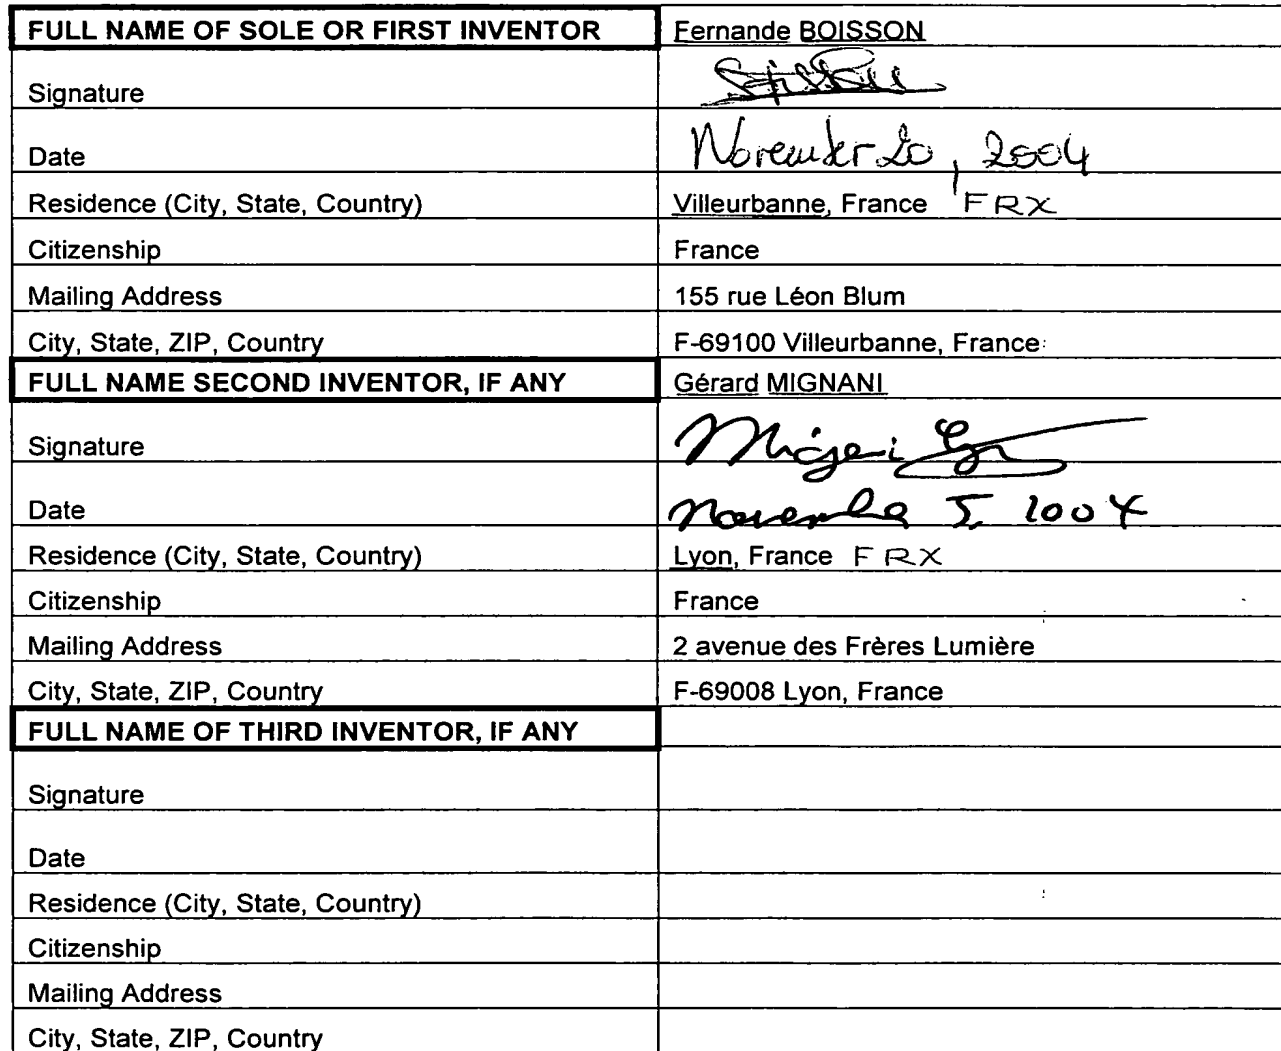 FULL NAME OF SOLE OR FIRST INVENTOR Fernande BOISSON
Signature
Date November 20, 2004
Residence (City, State, Country) Villeurbanne, France FRX
Citizenship France
Mailing Address 155 rue Léon Blum
City, State, ZIP, Country F-69100 Villeurbanne, France
FULL NAME SECOND INVENTOR, IF ANY Gérard MIGNANI
Signature Mignani
Date November 5, 2004
Residence (City, State, Country) Lyon, France FRX
Citizenship France
Mailing Address 2 avenue des Frères Lumière
City, State, ZIP, Country F-69008 Lyon, France
FULL NAME OF THIRD INVENTOR, IF ANY
Signature
Date
Residence (City, State, Country)
Citizenship
Mailing Address
City, State, ZIP, Country